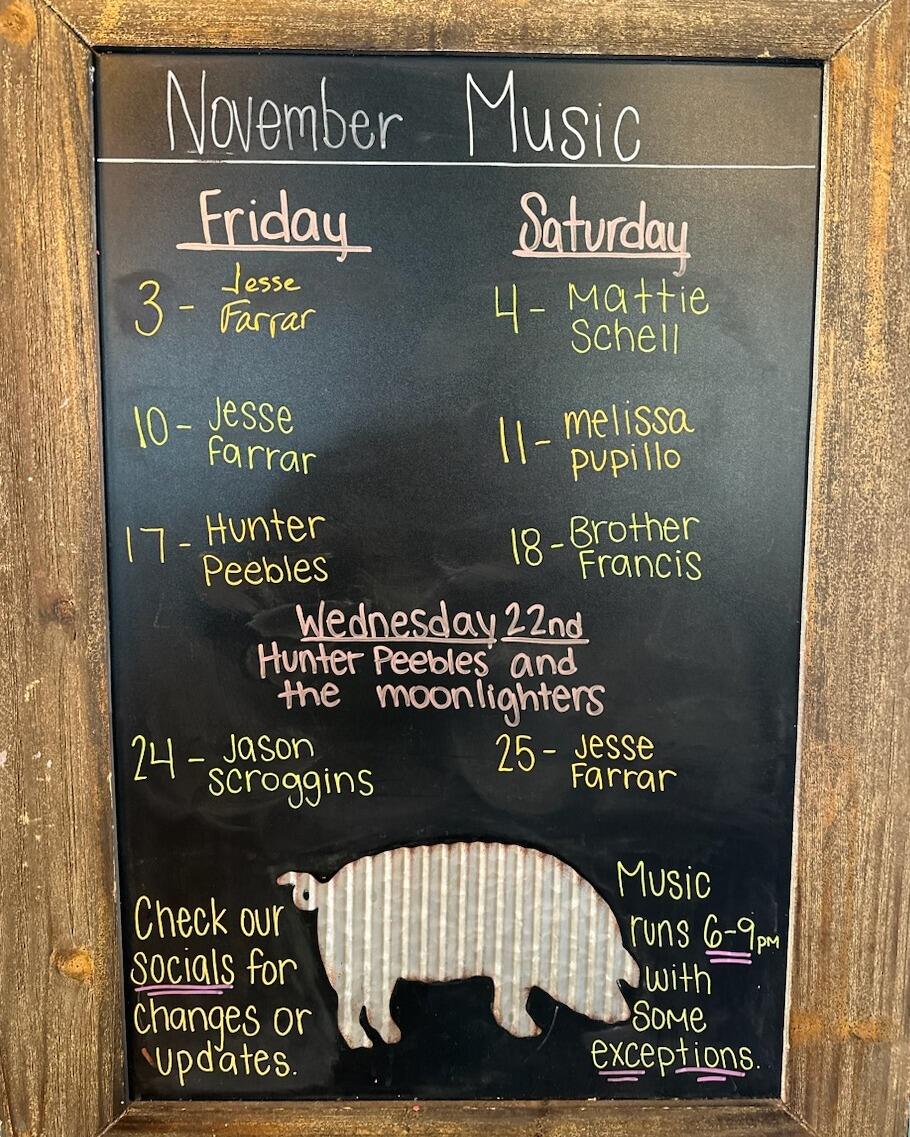 November Music
Friday
Saturday
3 - Jesse
Farrar
4 - Mattie
Schell
10 - Jesse
Farrar
11 - melissa
pupillo
17 - Hunter
Peebles
18 - Brother
Francis
Wednesday 22nd
Hunter Peebles and
the moonlighters
24 - Jason
Scroggins
25 - Jesse
Farrar
Check our
socials for
changes or
updates.
Music
runs 6-9pm
with
some
exceptions.